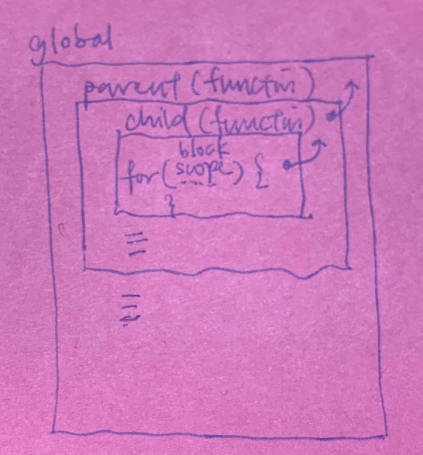 global
parent (function)
child (function)
block
for(scope) {
}